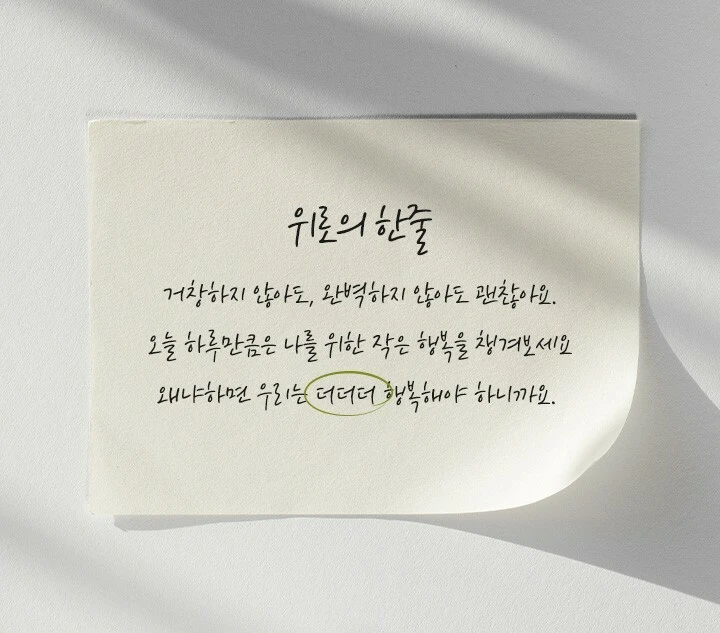 위로의 한줄
거창하지 않아도, 완벽하지 않아도 괜찮아요.
오늘 하루만큼은 나를 위한 작은 행복을 챙겨보세요
왜냐하면 우리는 더더더 행복해야 하니까요.